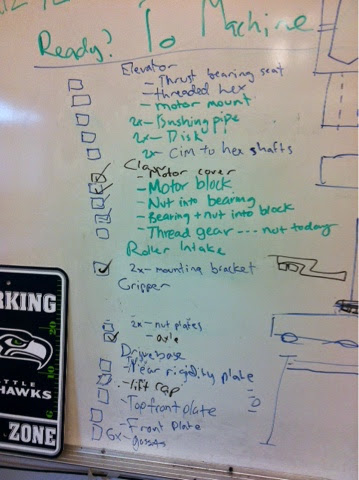 Ready? To Machine
Elevator
- Thrust bearing seat
- threaded hex
- motor mount
2x - Bushing pipe
2x - Disk
2x - Cim to hex shafts
Claw
- Motor cover
- Motor block
- Nut into bearing
- Bearing + nut into block
- Thread gear --- not today
Roller Intake
2x - mounting bracket
Gripper
2x - nut plates
- axle
Drivebase
- Near rigidity plate
- lift
- Top front plate
- Front plate
6x - gussets
RKING
TTLE
HAWKS
ZONE